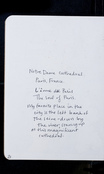 Notre Dame Cathedral
Paris, France
L'âme de Paris
The Soul of Paris
My favorite place in the
city is the left bank of
the Seine down by
the river, looking up
at this magnificent
cathedral.